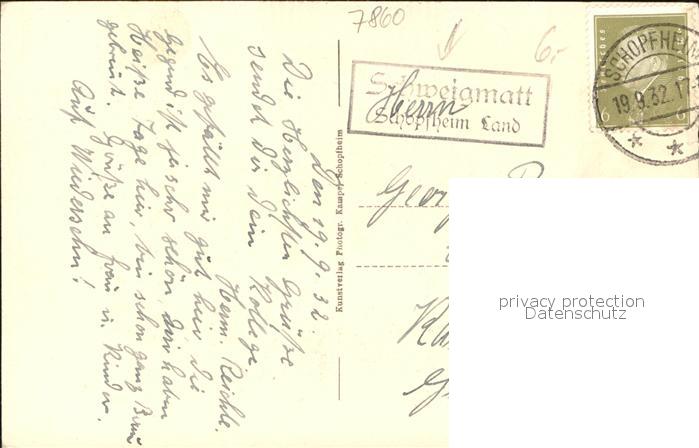 7860
6.-
SCHOPFHEIM
19.9.32.17
6
6
Schweigmatt
Schopfheim Land
Herrn
Georg
privacy protection
Datenschutz
Kunstverlag Photogr. Kamper Schopfheim
Den 19.9.32.
Die Herzlichsten Grüße
sendet Dir dein Kollege
Herm. Reichle.
Es gefällt mir gut hier die
Gegend ist ja sehr schön, wir haben
Heiße Tage hier, bin schon ganz Braun
gebrannt. Grüße an Frau u. Kinder.
Auf Wiedersehn!